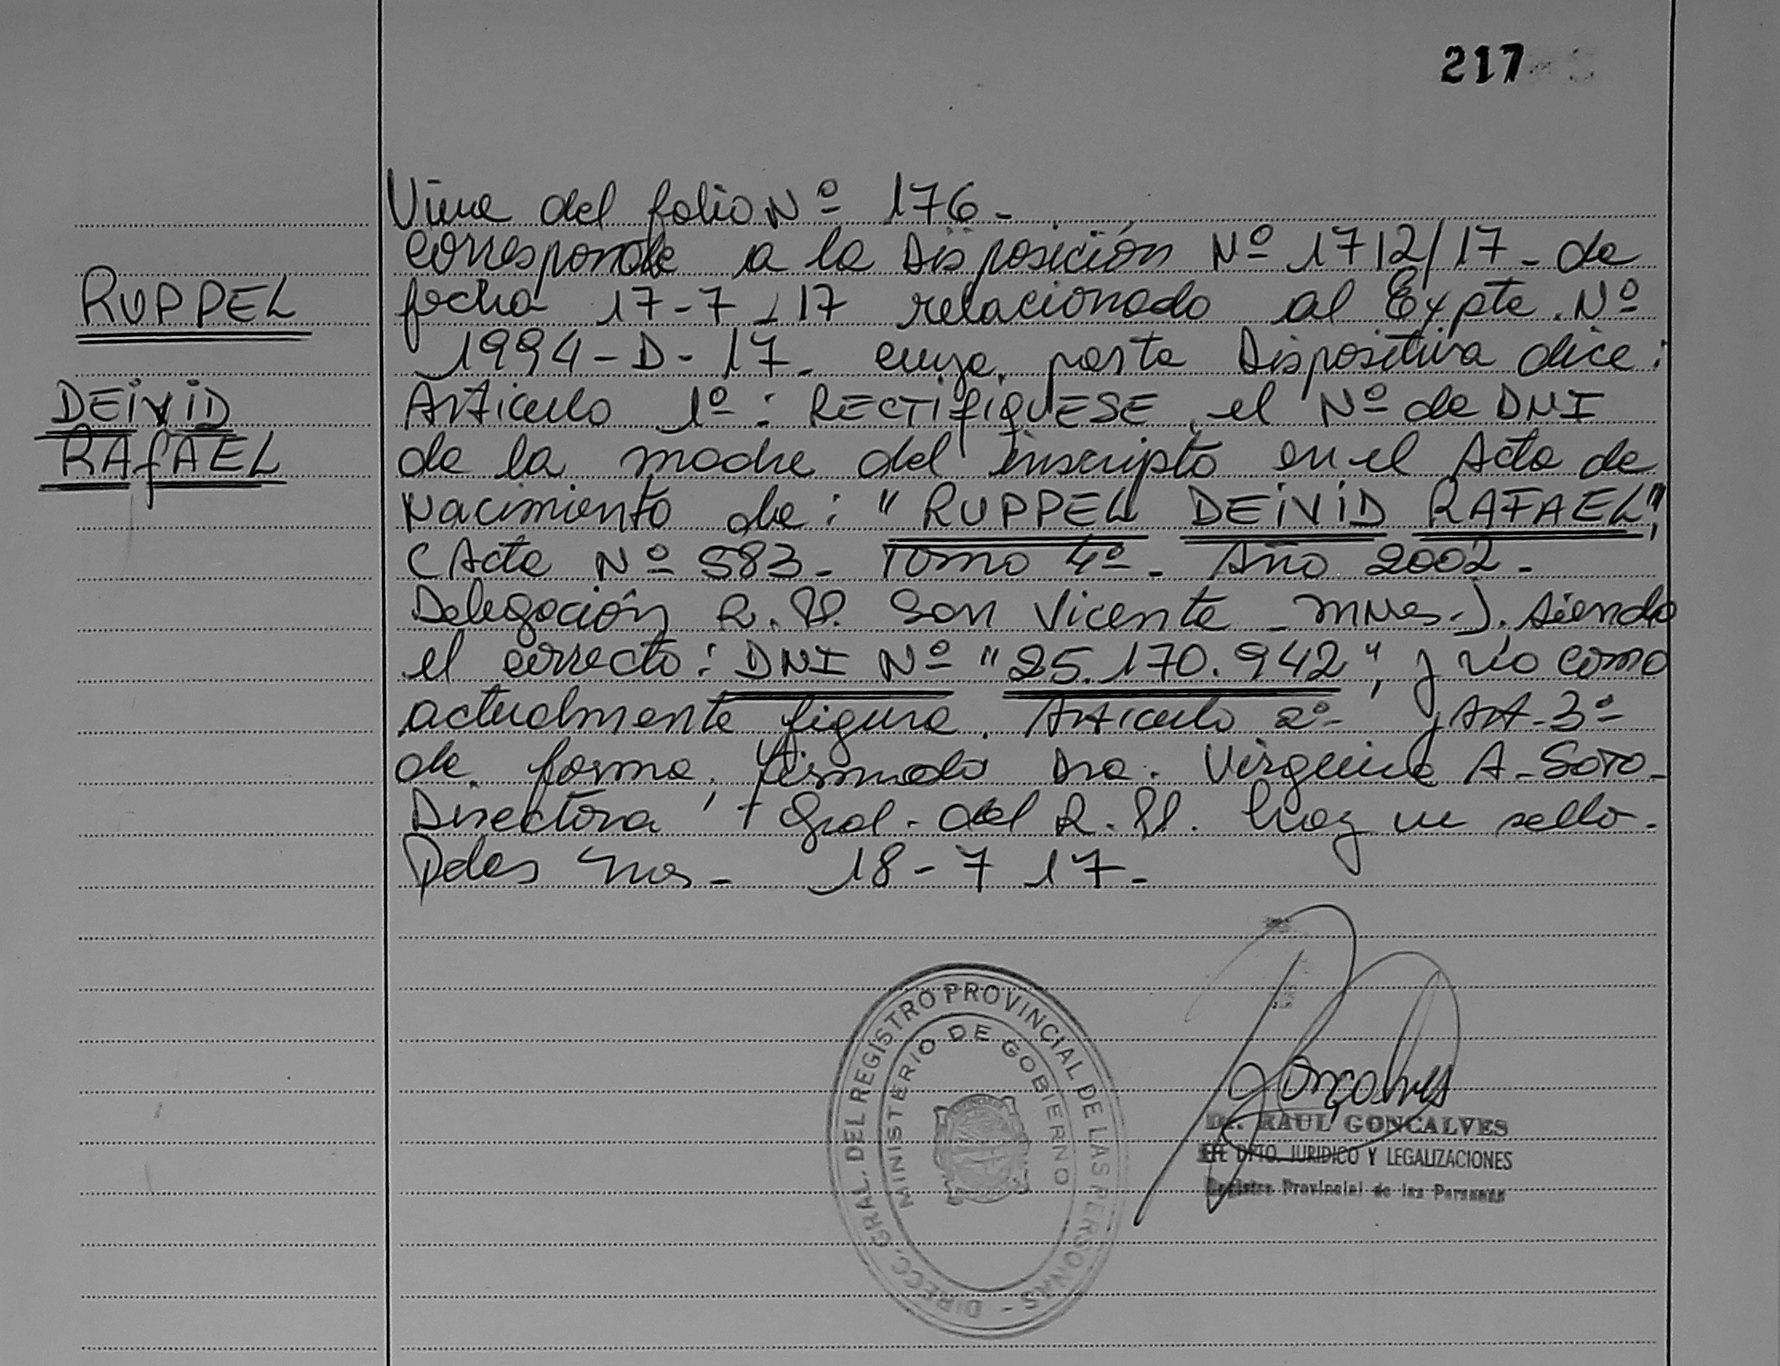 217
Viene del folio Nº 176-
corresponde a la Disposición Nº 1712/17- de
RUPPEL
fecha 17-7-17 relacionado al Expte. Nº
1994-D-17- cuya parte Dispositiva dice:
DEiViD
Artículo 1º: RECTIFIQUESE el Nº de DNI
RAfAEL
de la madre del Inscripto en el Acta de
Nacimiento de: "RUPPEL DEiViD RAFAEL",
(Acta Nº 583- Tomo 4º- Año 2002-
Delegación R.P. San Vicente - Mnes-). siendo
el correcto: DNI Nº "25.170.942", y no como
actualmente figura. Artículo 2º- y Art-3º
de forma. firmado Dra. Virginia A-Soto-
Directora Gral. del R.P. hay un sello-
Pdas Mnes- 18-7 17-
DIRECC. GRAL. DEL REGISTRO PROVINCIAL DE LAS PERSONAS -
MINISTERIO DE GOBIERNO
Gonçalves
Dr. RAUL GONCALVES
EFE DPTO. JURIDICO Y LEGALIZACIONES
Registro Provincial de las Personas